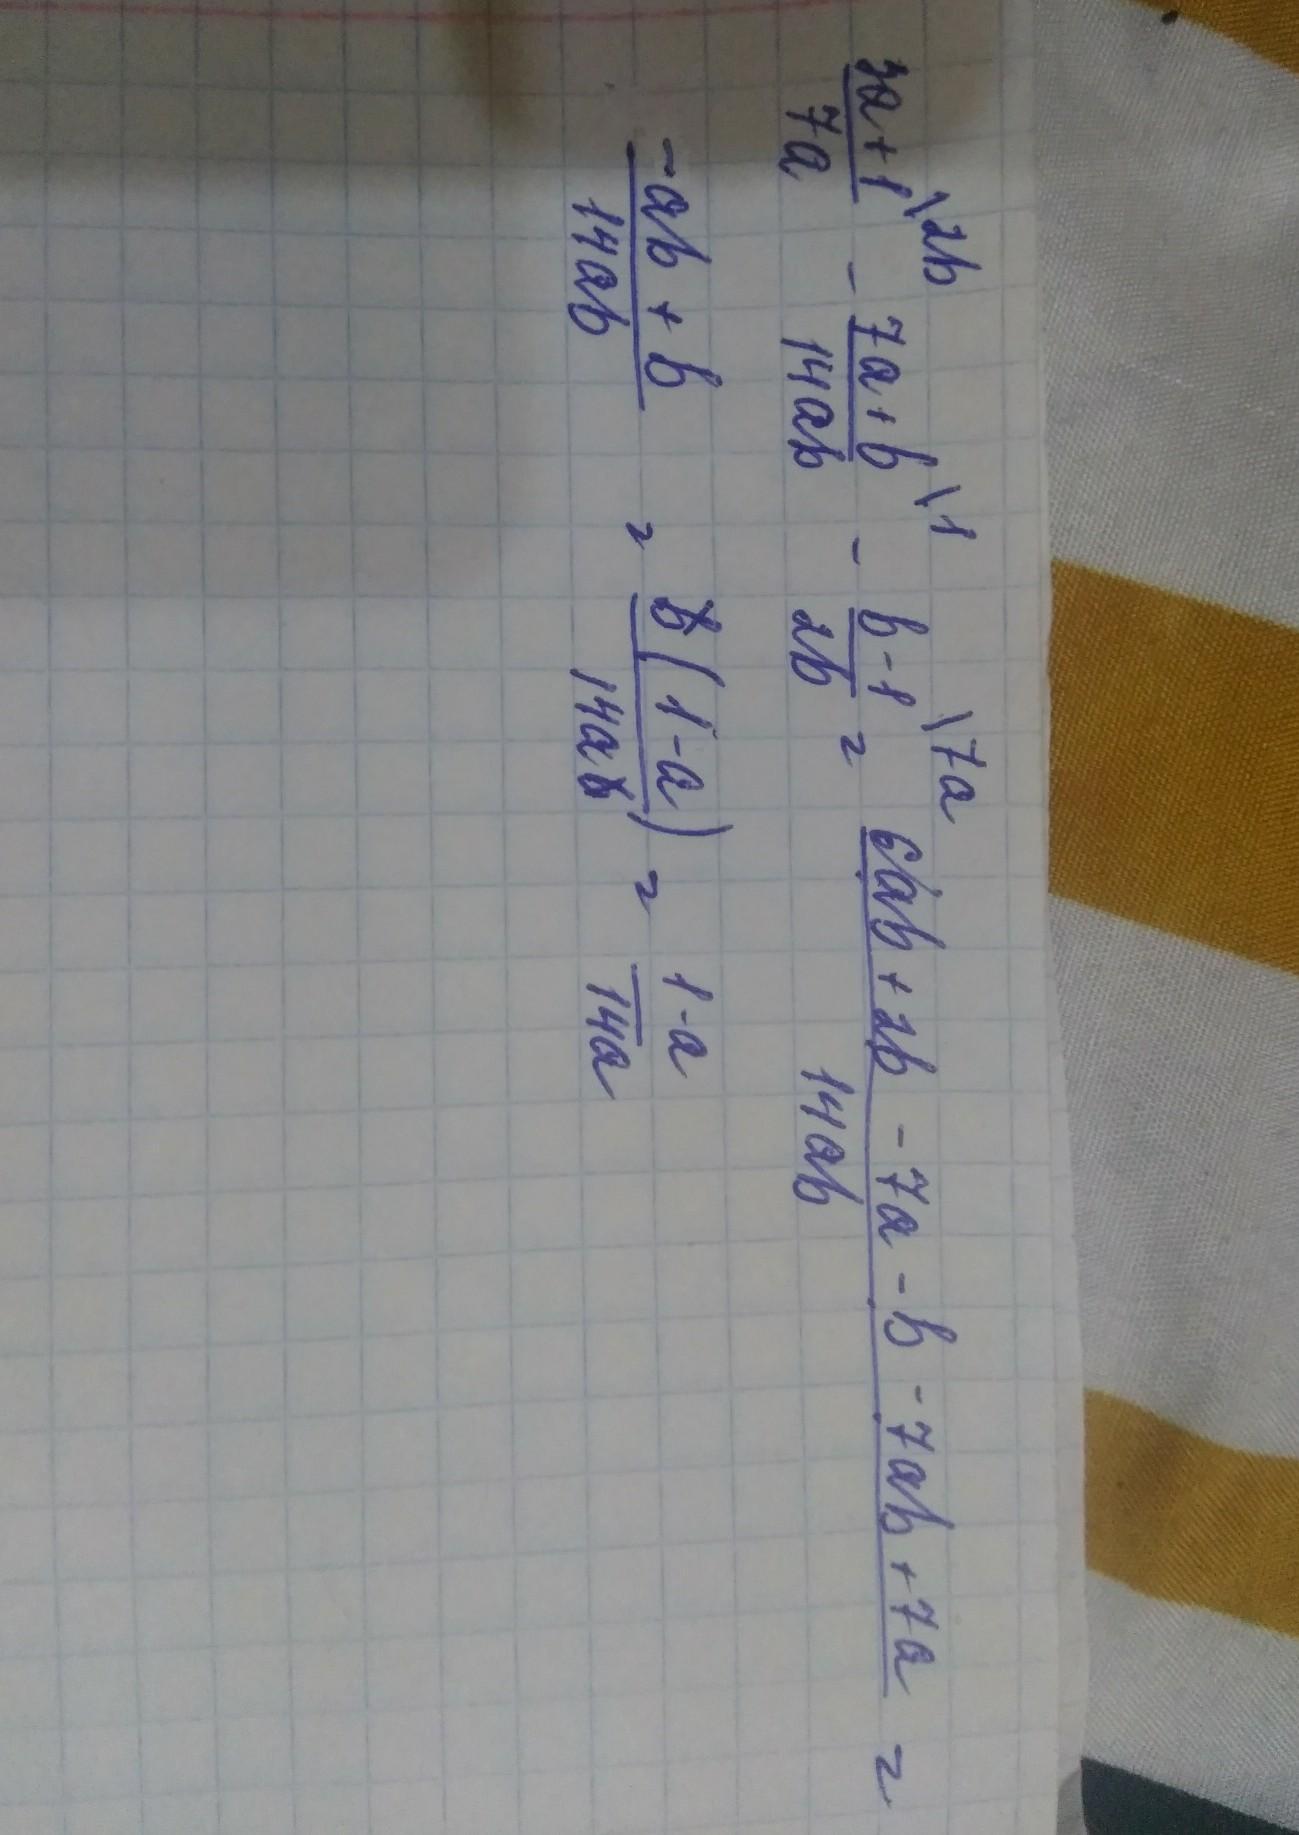 3a+1\2b / 7a - 7a+b\1 / 14ab - b-1\7a / 2b = 6ab+2b-7a-b-7ab+7a / 14ab =
-ab+b / 14ab = b(1-a) / 14ab = 1-a / 14a